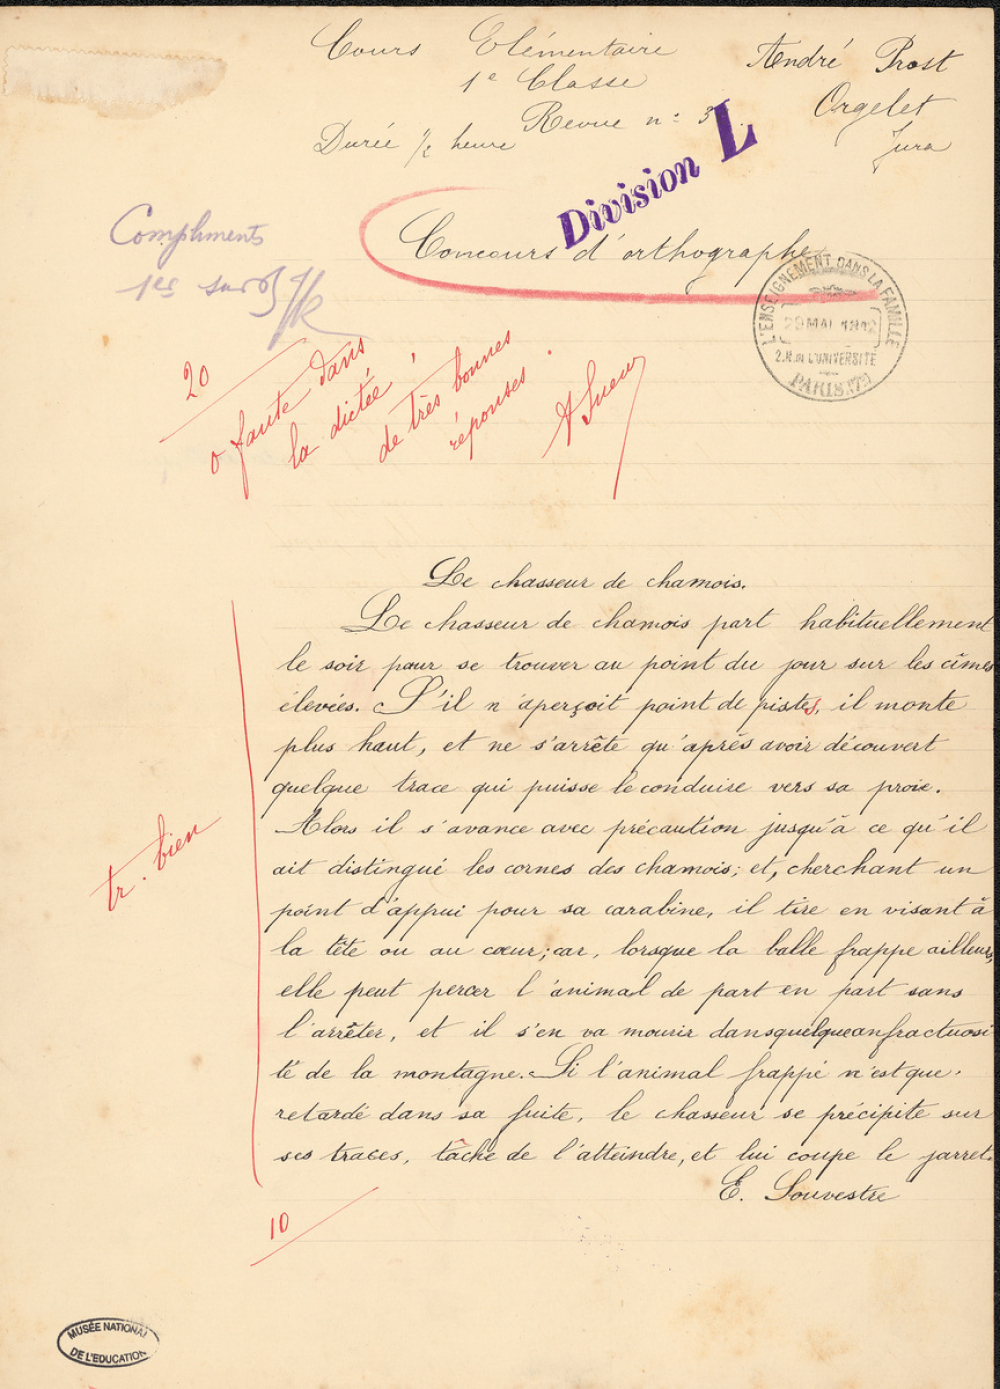 Cours Elémentaire
1e Classe
André Prost
Orgelet
Jura
Revue n: 3
Durée 1/2 heure
Division L
Compliments
1er sur
Concours d'orthographe
L'ENSEIGNEMENT DANS LA FAMILLE
29 MAI
2.R. DE L'UNIVERSITÉ
PARIS (7e)
20
0 faute dans
la dictée,
de très bonnes
réponses.
Le chasseur de chamois.
Le chasseur de chamois part habituellement
le soir pour se trouver au point du jour sur les cîmes
élevées. S'il n'aperçoit point de pistes, il monte
plus haut, et ne s'arrête qu'après avoir découvert
quelque trace qui puisse le conduire vers sa proie.
Alors il s'avance avec précaution jusqu'à ce qu'il
ait distingué les cornes des chamois; et, cherchant un
point d'appui pour sa carabine, il tire en visant à
la tête ou au cœur; car, lorsque la balle frappe ailleurs,
elle peut percer l'animal de part en part sans
l'arrêter, et il s'en va mourir dans quelque anfractuosi
té de la montagne. Si l'animal frappé n'est que
retardé dans sa fuite, le chasseur se précipite sur
ses traces, tâche de l'atteindre, et lui coupe le jarret.
E. Souvestre
tr. bien
10
MUSÉE NATIONAL
DE L'EDUCATION